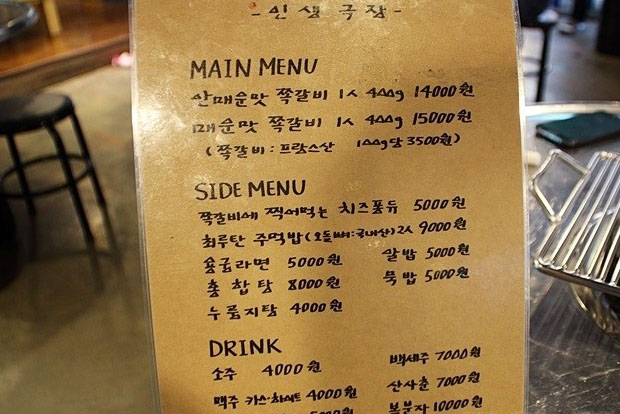 - 인생극장 -
MAIN MENU
안매운맛 쪽갈비 1人 400g 14000원
매운맛 쪽갈비 1人 400g 15000원
(쪽갈비 : 프랑스산 100g당 3500원)
SIDE MENU
쪽갈비에 찍어먹는 치즈퐁듀 5000원
최루탄 주먹밥(오돌뼈:국내산)2人 9000원
용궁라면 5000원 알밥 5000원
홍합탕 8000원 묵밥 5000원
누룽지탕 4000원
DRINK
소주 4000원 백세주 7000원
맥주 카스·하이트 4000원 산사춘 7000원
복분자 10000원